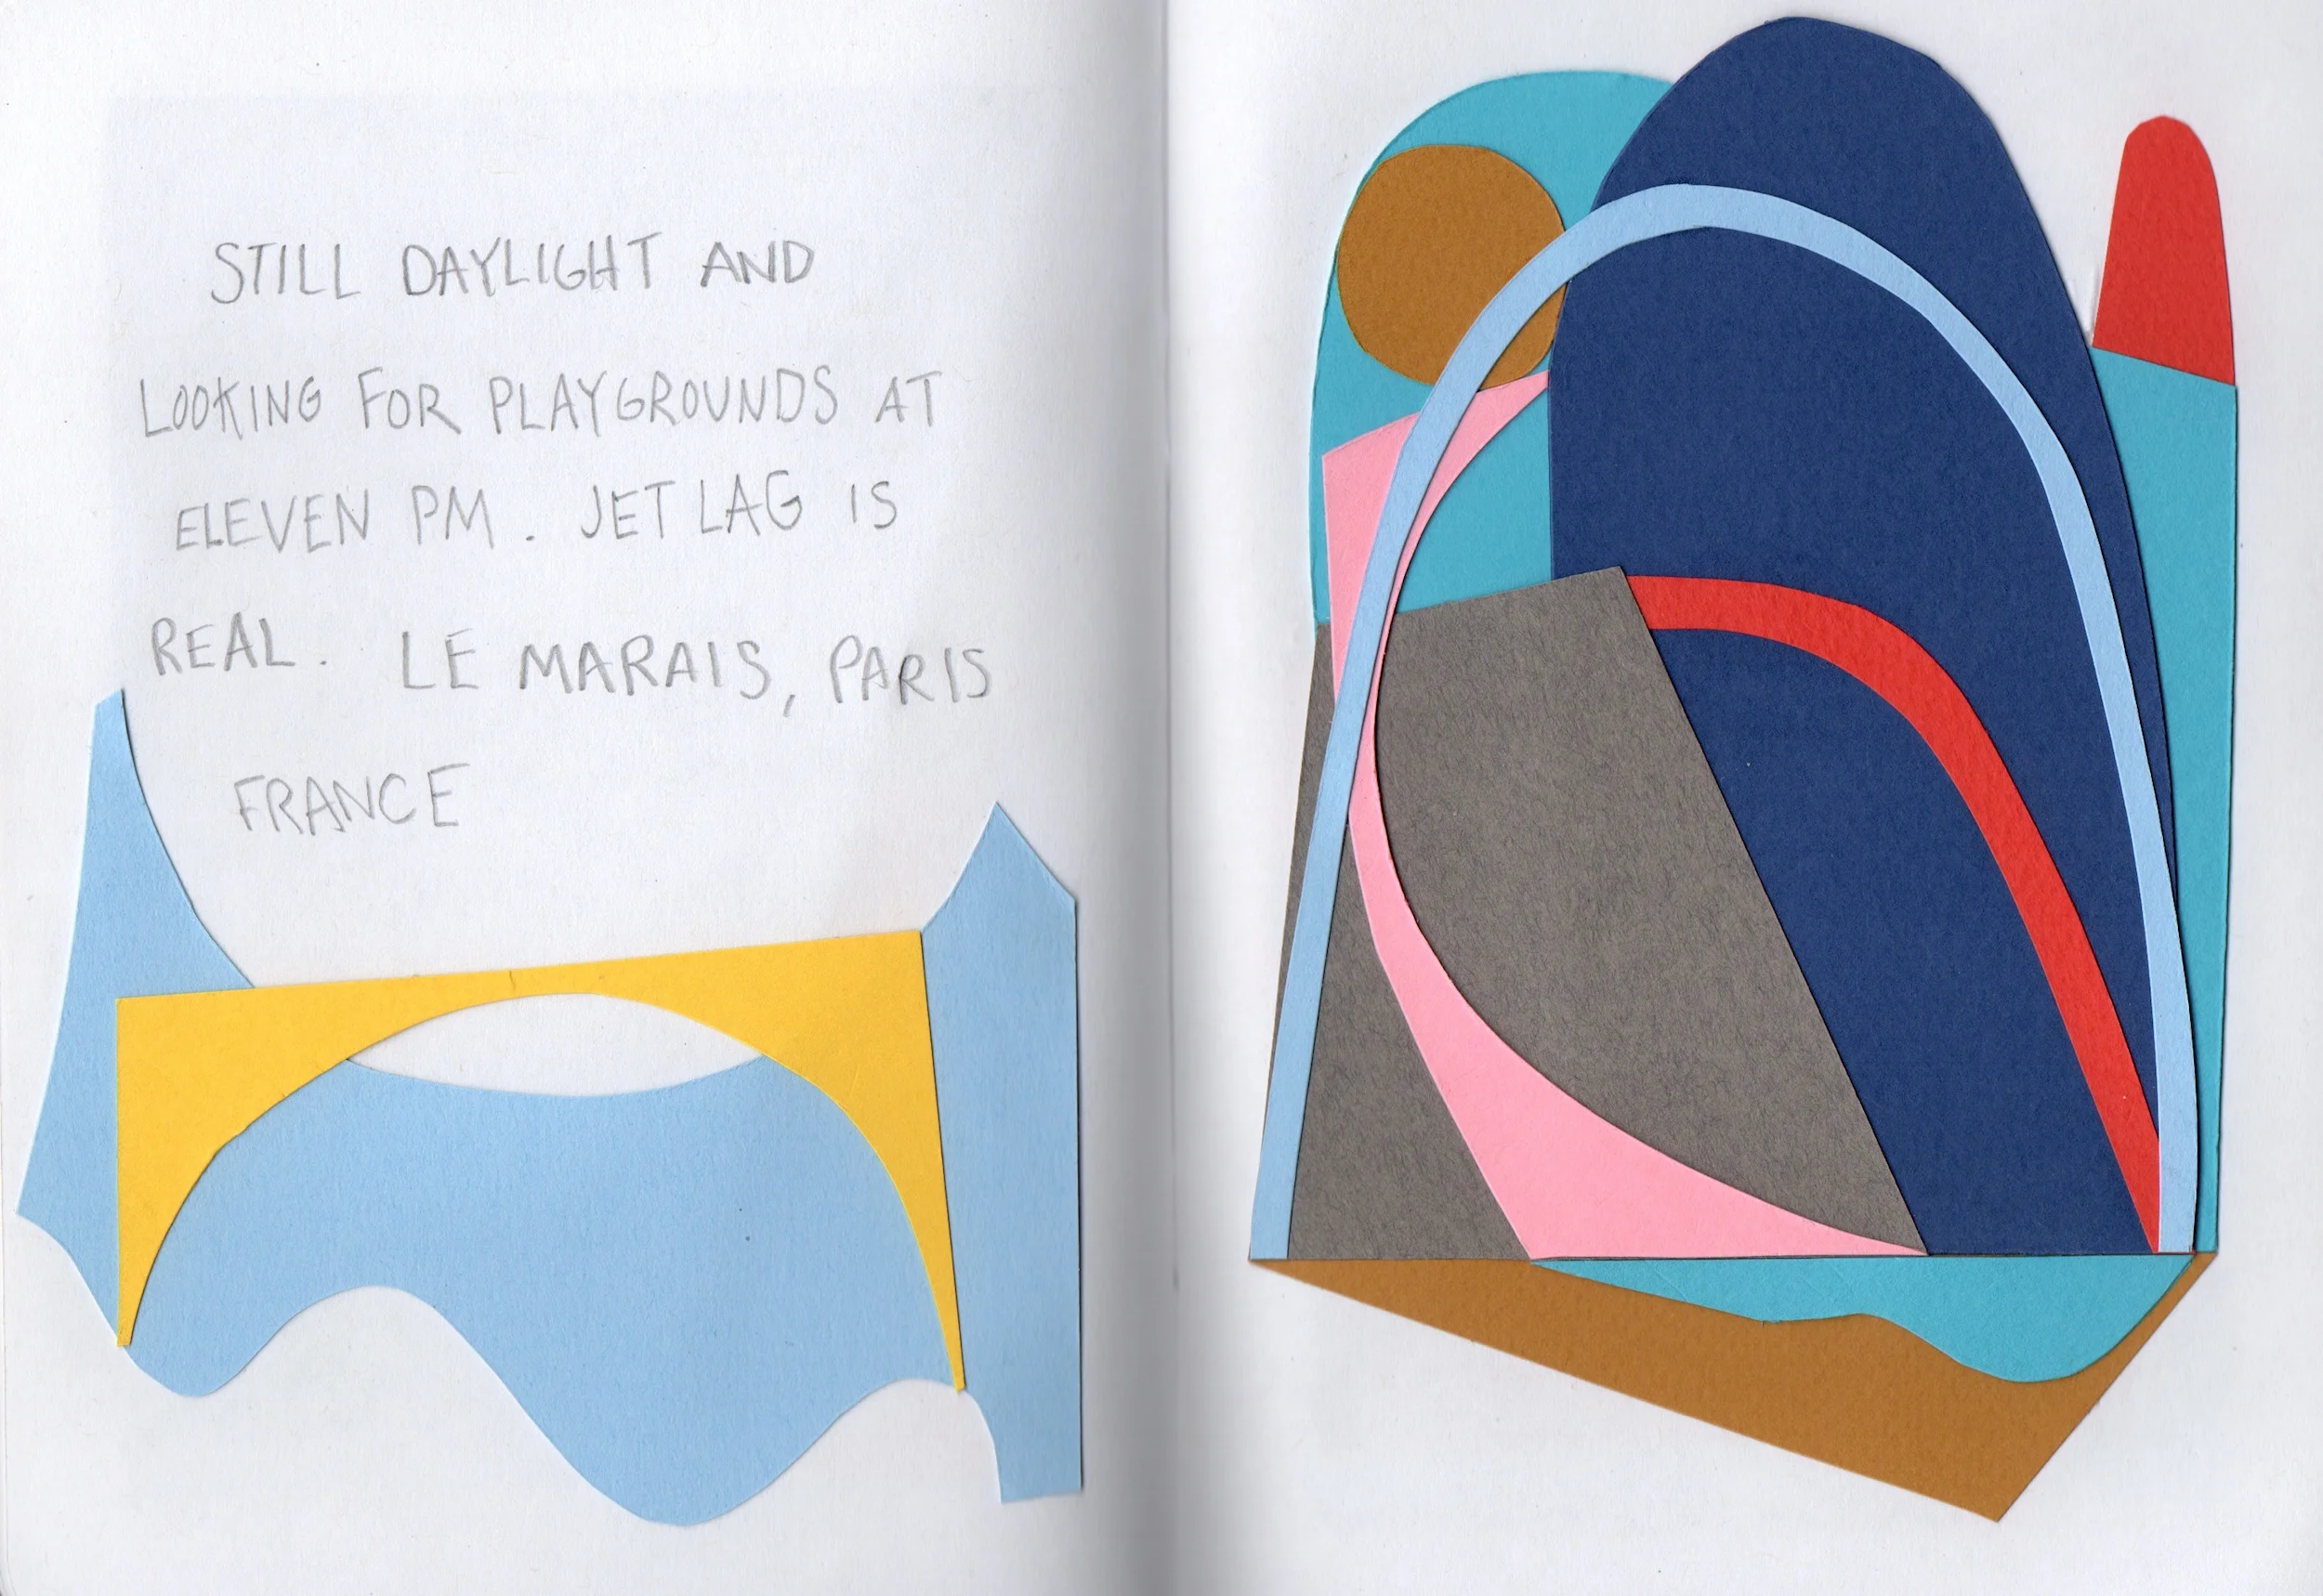 STILL DAYLIGHT AND
LOOKING FOR PLAYGROUNDS AT
ELEVEN PM. JET LAG IS
REAL. LE MARAIS, PARIS
FRANCE